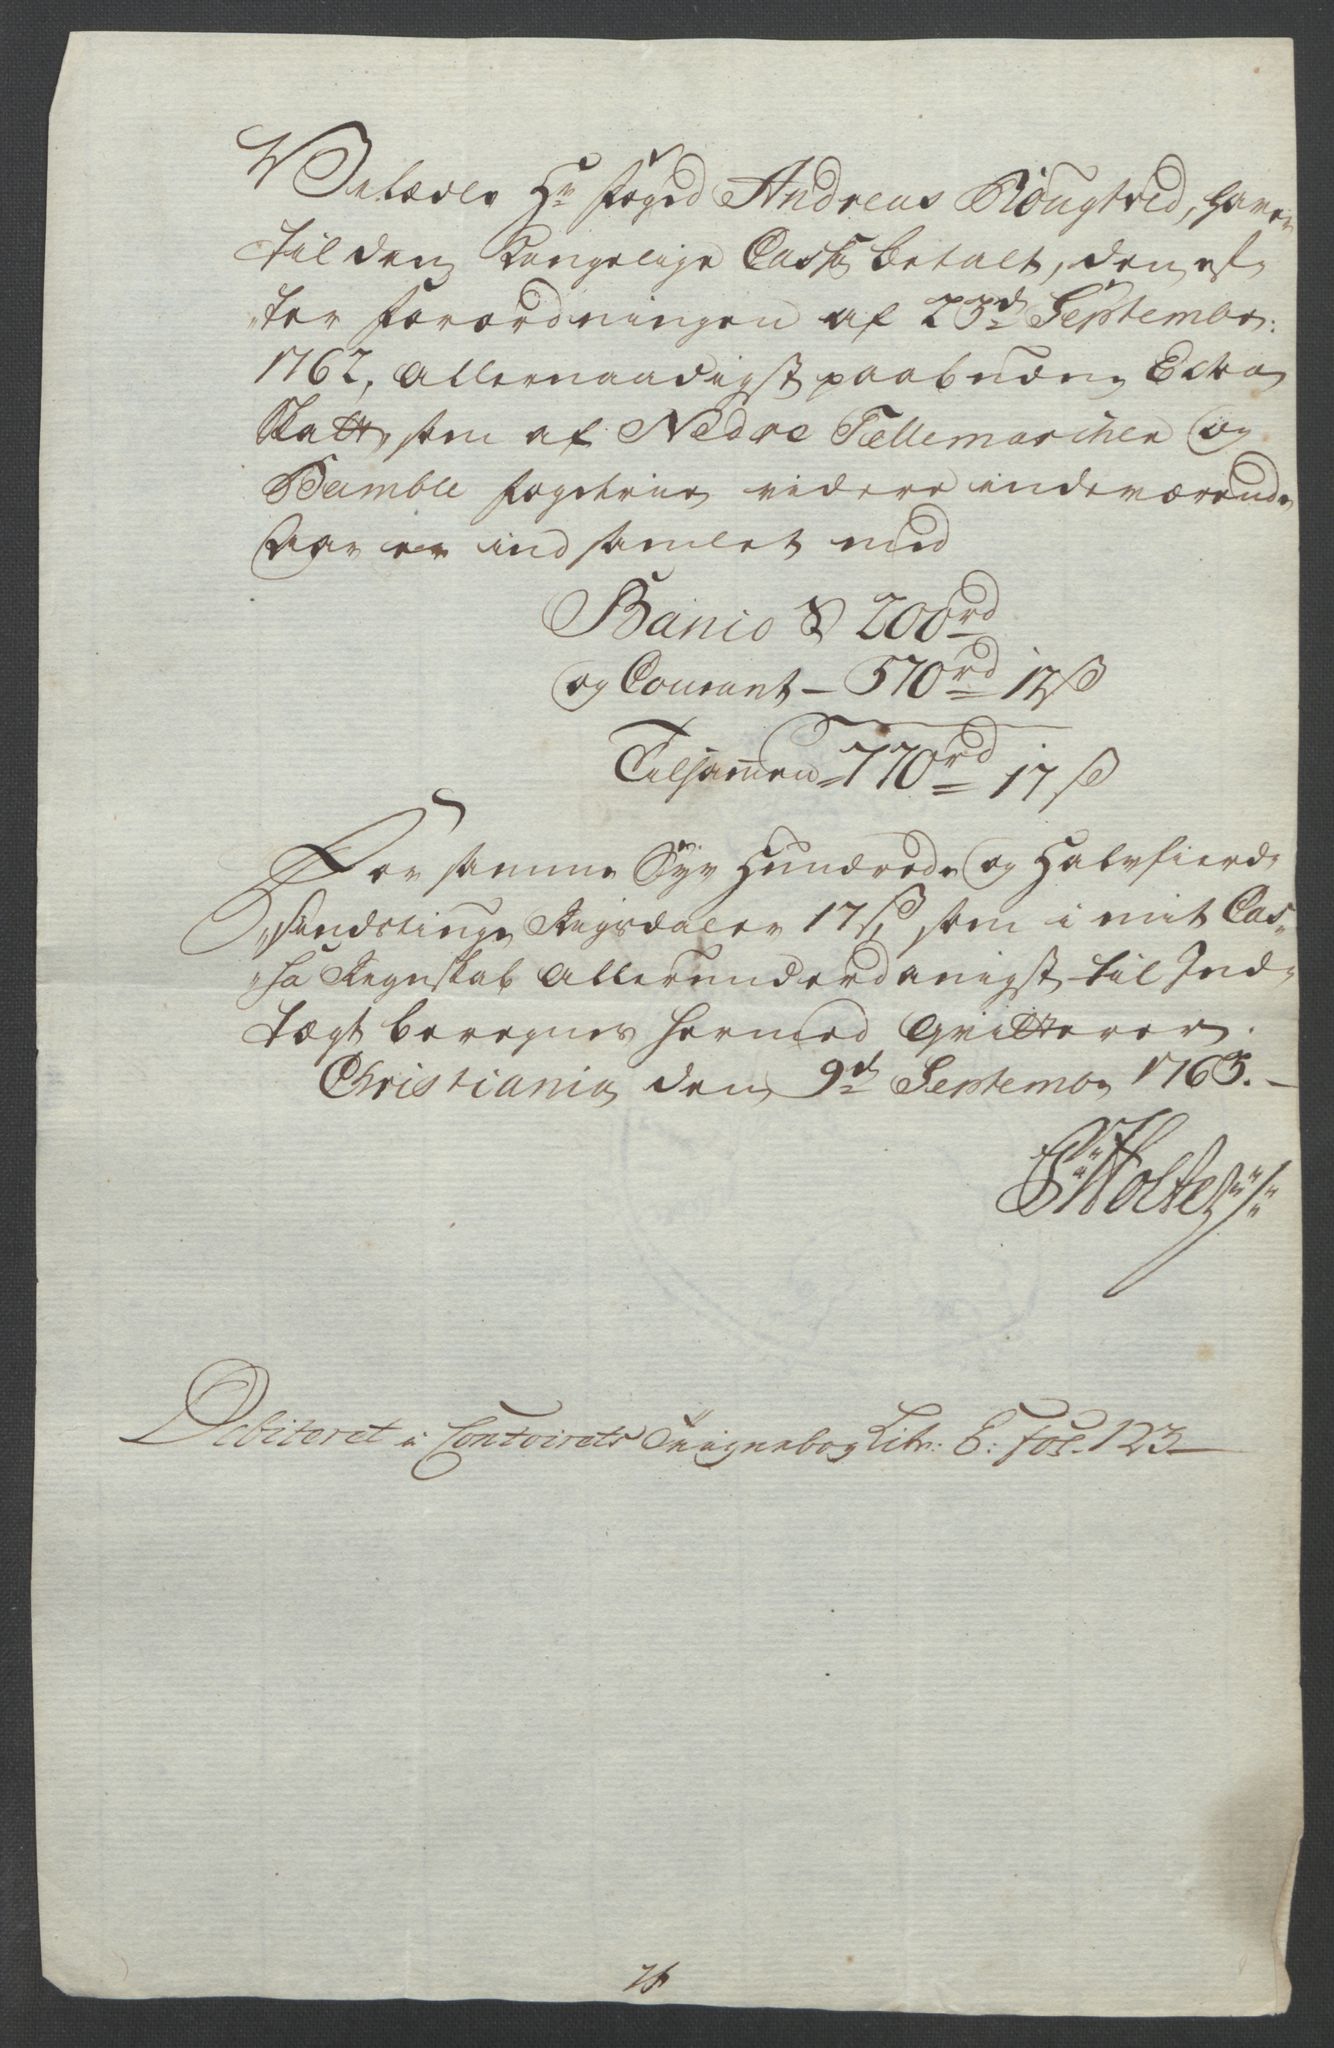 Velædle Hr Foged Andreas Rougtved, haver
til den Kongelige Cassa betalt, den ef-
ter Forordningen af 23d Septembr:
1762, allernaadigst paabudne Extra
Skatt, som af Nedre Tellemarchen og
Bamble fogderie videre indeværende
Aar er indsamlet med
Banco S 200rd
og Courant - 570rd 17ß
Tilsamen 770rd 17ß
For samme Syv Hundrede og Halvfierd-
sindstiuge Rigsdaler 17ß, som i mit Cas-
sa Regnskab allerunderdanigst til Ind-
tægt beregnes hermed Qvitterer.
Christiania den 9d Septembr 1763.
P: Holte
Debiteret i Contoirets Qvægnebog Litr: E: Fol. 123